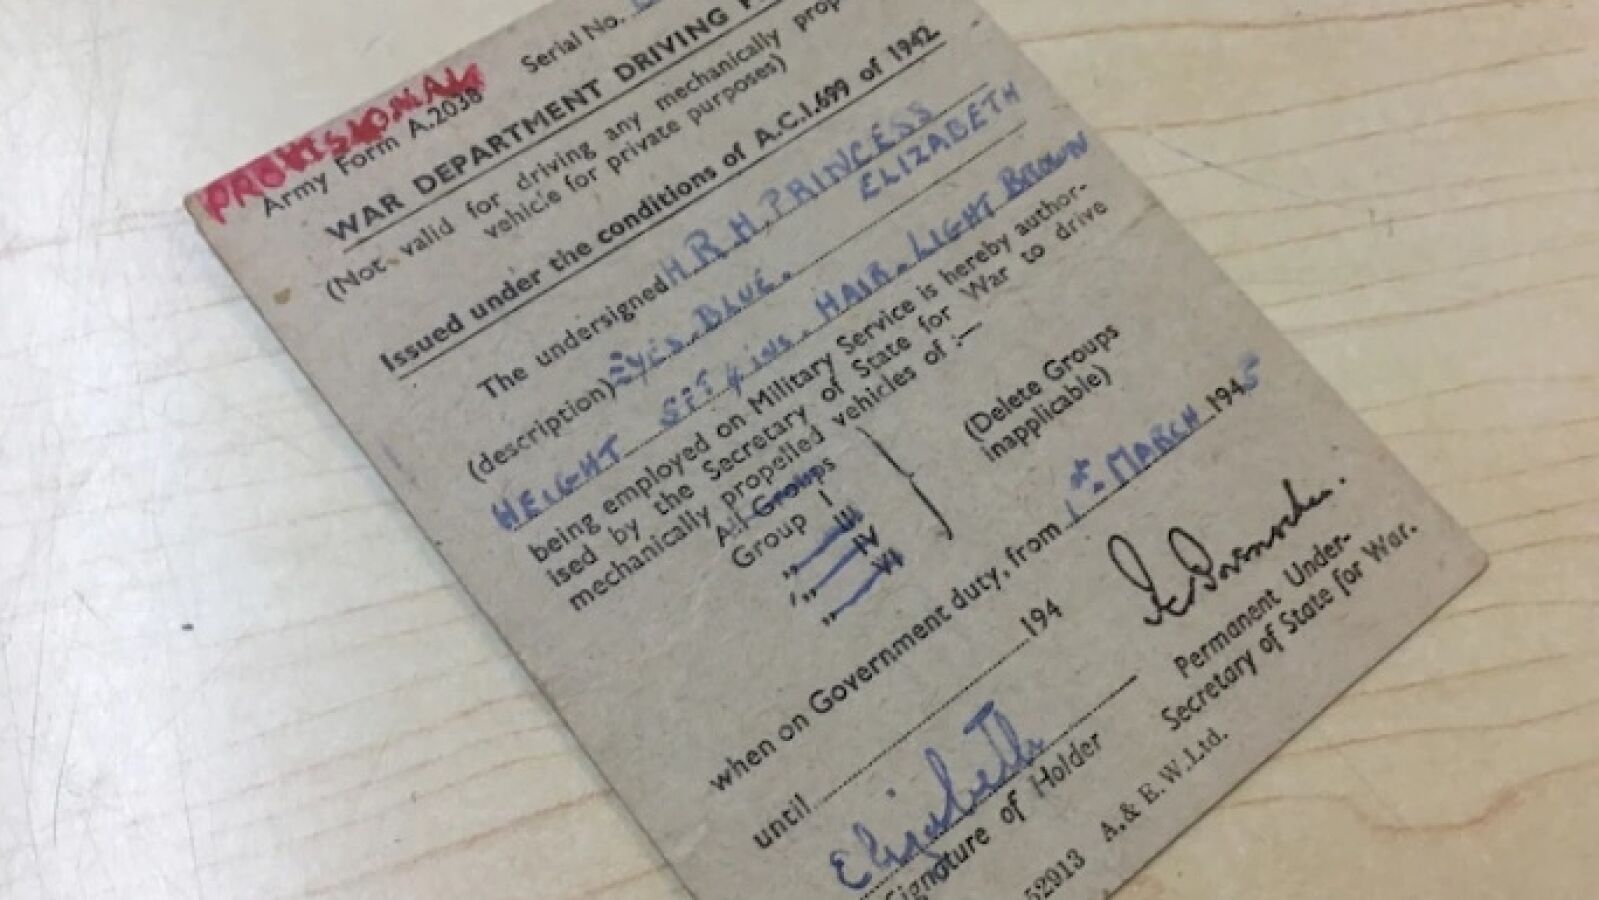 PROVISIONAL
Army Form A.2038 Serial No.
WAR DEPARTMENT DRIVING
(Not valid for driving any mechanically
vehicle for private purposes)
Issued under the conditions of A.C.I.699 of 1942.
The undersigned H R H PRINCESS
ELIZABETH
(description) EYES. BLUE.
HEIGHT 5FT 4 ins. HAIR. LIGHT BROWN
being employed on Military Service is hereby author-
ised by the Secretary of State for War to drive
mechanically propelled vehicles of :—
All Groups
Group I
„ III
„ IV
„ VI
(Delete Groups
inapplicable)
when on Government duty, from 1st MARCH 1945
until 194
Elizabeth
Signature of Holder
Permanent Under-
Secretary of State for War.
52913 A. & E. W. Ltd.